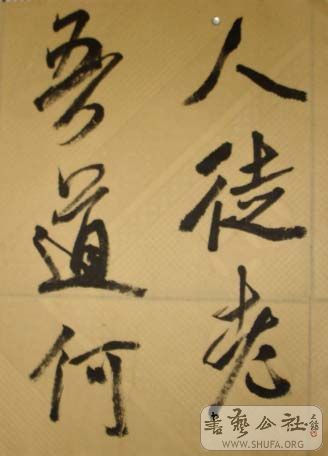 人徒老
吾道何
書藝公社
WWW.SHUFA.ORG